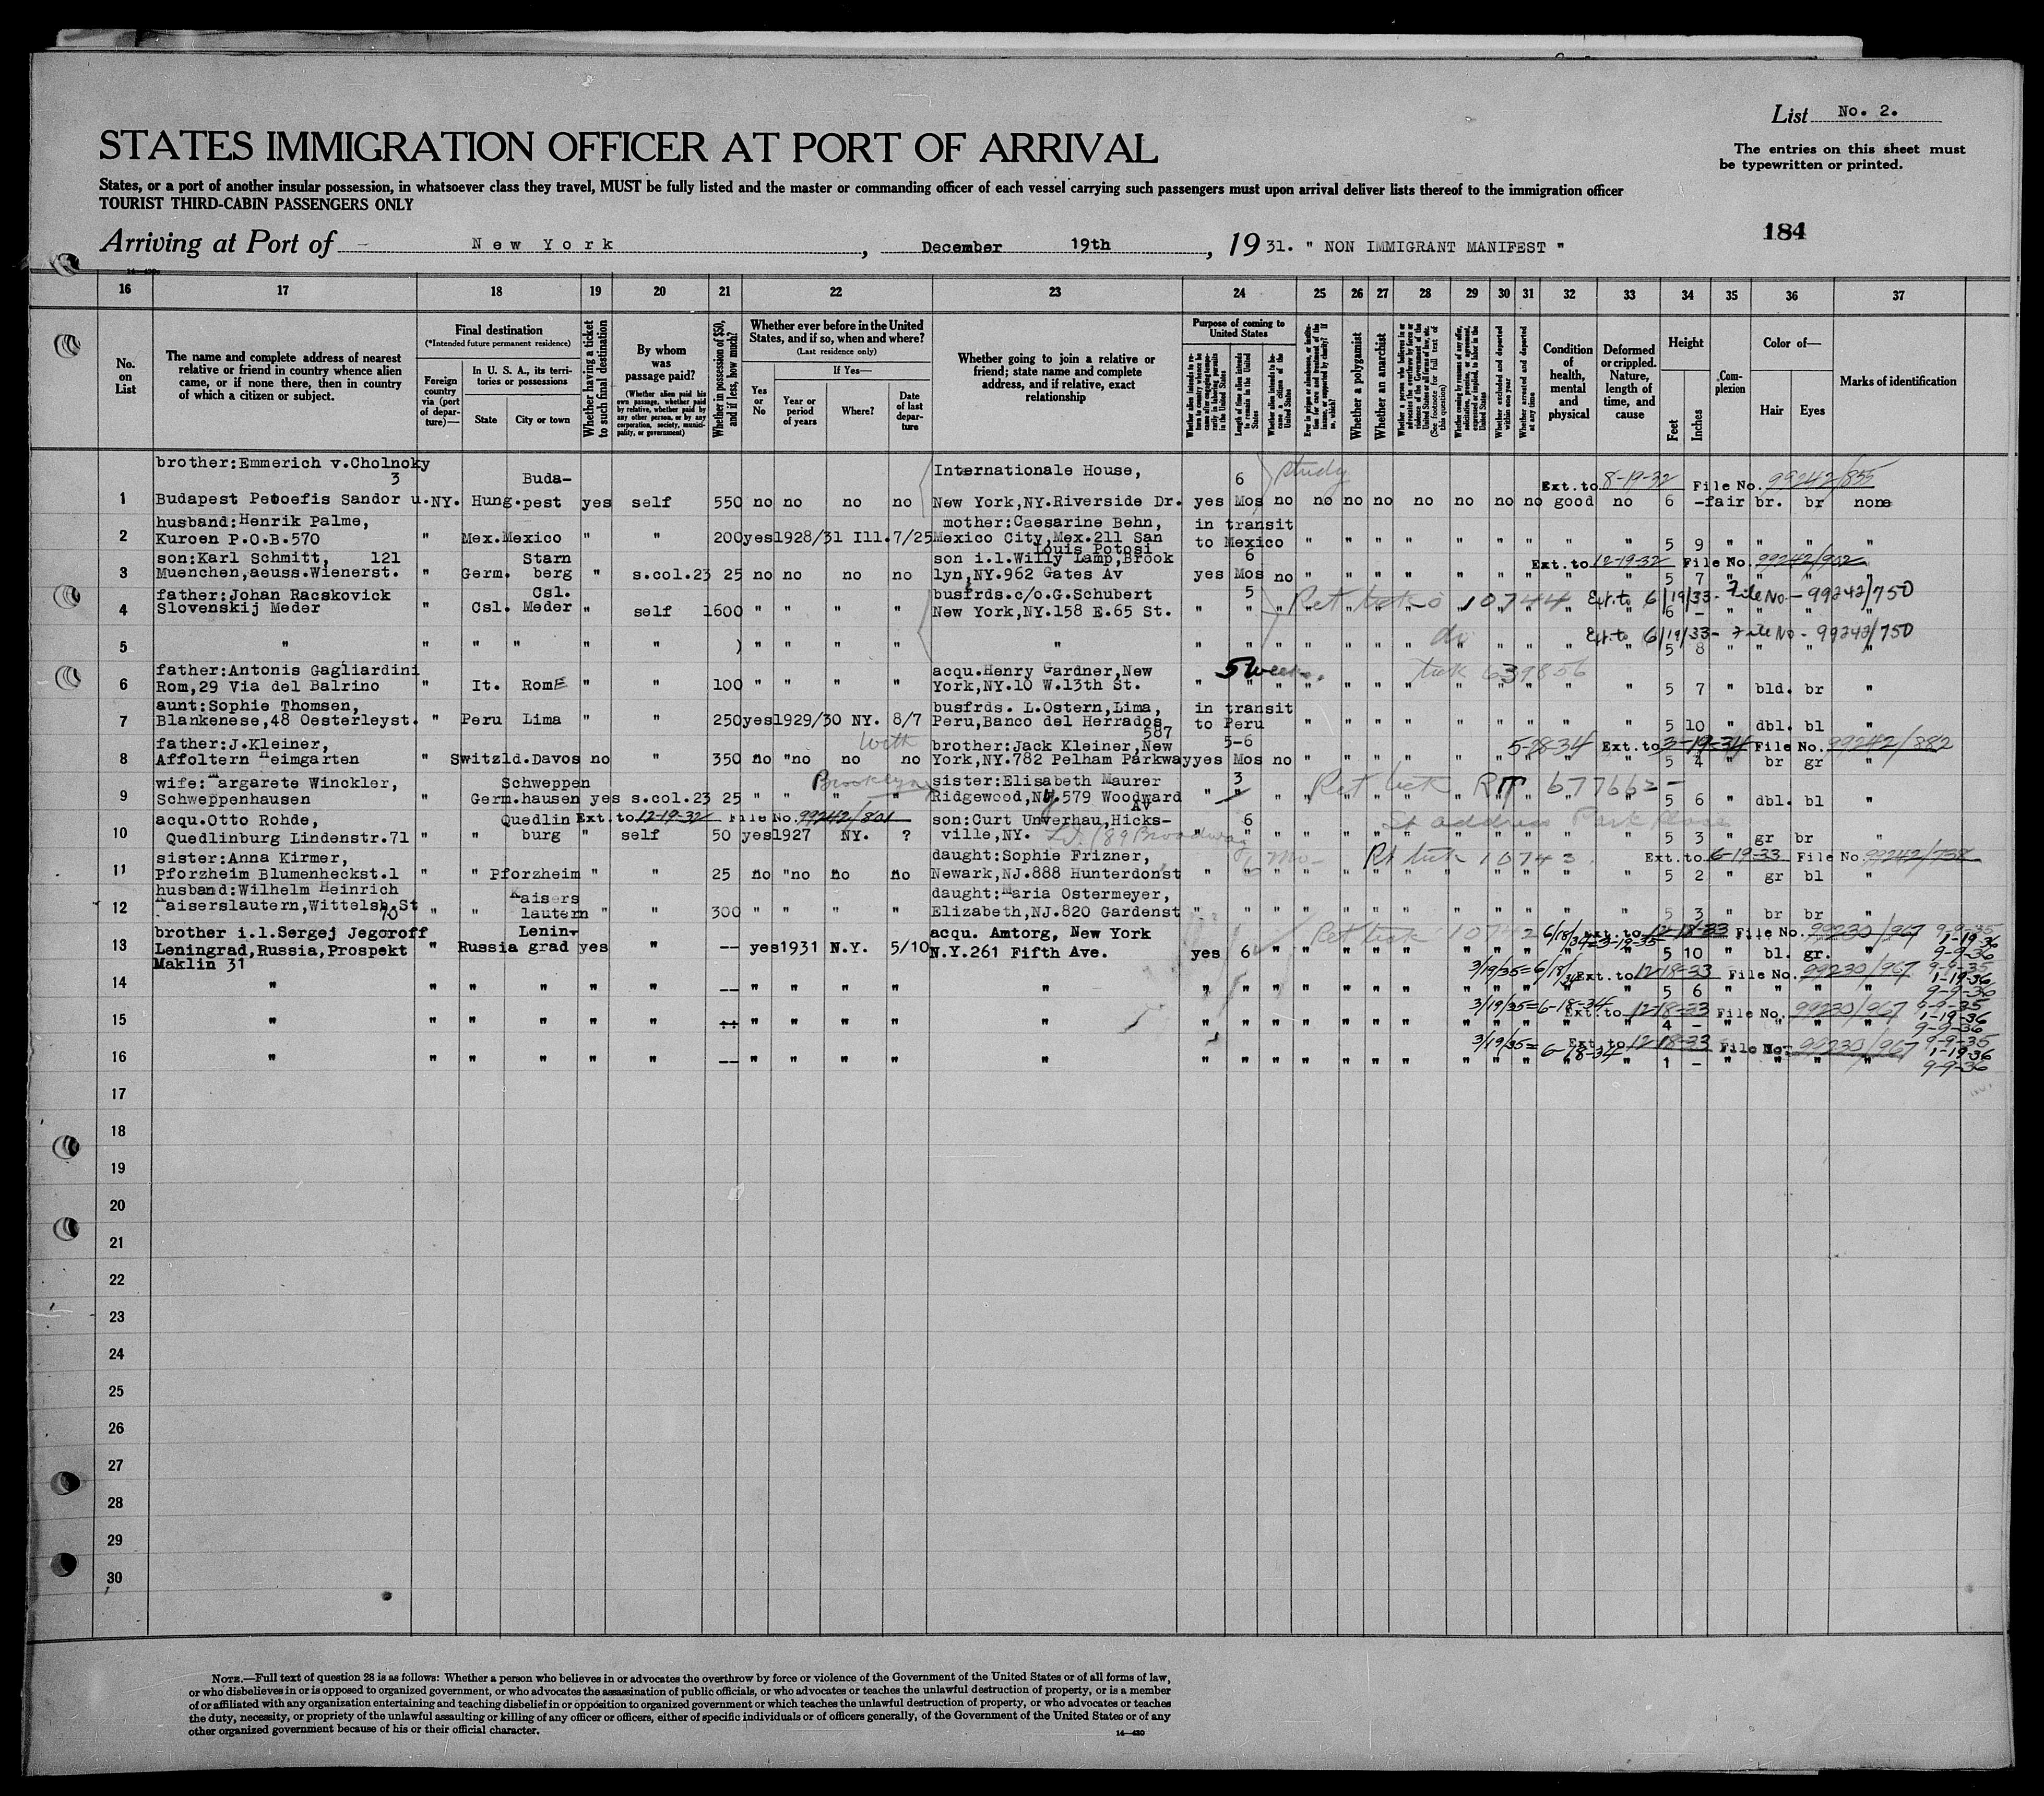 List No. 2.
STATES IMMIGRATION OFFICER AT PORT OF ARRIVAL
The entries on this sheet must
be typewritten or printed.
States, or a port of another insular possession, in whatsoever class they travel, MUST be fully listed and the master or commanding officer of each vessel carrying such passengers must upon arrival deliver lists thereof to the immigration officer
TOURIST THIRD-CABIN PASSENGERS ONLY
184
Arriving at Port of New York, December 19th, 1931. " NON IMMIGRANT MANIFEST "
16 17 18 19 20 21 22 23 24 25 26 27 28 29 30 31 32 33 34 35 36 37
No. on List
The name and complete address of nearest relative or friend in country whence alien came, or if none there, then in country of which a citizen or subject.
Final destination
(*Intended future permanent residence)
Foreign country via (port of departure)—
In U. S. A., its territories or possessions
State
City or town
Whether having a ticket to such final destination
By whom was passage paid?
(Whether alien paid his own passage, whether paid by relative, whether paid by any other person, or by any corporation, society, municipality, or government)
Whether in possession of $50, and if less, how much?
Whether ever before in the United States, and if so, when and where?
(Last residence only)
Yes or No
If Yes—
Year or period of years
Where?
Date of last departure
Whether going to join a relative or friend; state name and complete address, and if relative, exact relationship
Purpose of coming to United States
Length of time alien intends to remain in the United States
Whether alien intends to become a citizen of the United States
Whether a polygamist
Whether an anarchist
(See footnote for full text of this question)
Whether excluded and deported within one year
Whether arrested and deported at any time
Condition of health, mental and physical
Deformed or crippled. Nature, length of time, and cause
Height
Feet
Inches
Complexion
Color of—
Hair
Eyes
Marks of identification
brother:Emmerich v.Cholnoky Internationale House, study
3 Buda- 6 Ext.to 8-19-32 File No. 99242/855
1 Budapest Petoefis Sandor u. NY. Hung. pest yes self 550 no no no no New York,NY.Riverside Dr. yes Mos no no no no no no no no good no 6 - fair br. br none
husband:Henrik Palme, mother:Caesarine Behn, in transit
2 Kuroen P.O.B.570 " Mex.Mexico " " 200 yes 1928/31 Ill. 7/25 Mexico City,Mex.211 San to Mexico " " " " " " " " " 5 9 " " " "
Louis Potosi
son:Karl Schmitt, 121 Starn son i.l.Willy Lamp,Brook 6 Ext.to 12-19-32 File No. 99242/902
3 Muenchen,aeuss.Wienerst. " Germ. berg " s.col.23 25 no no no no lyn,NY.962 Gates Av yes Mos no " " " " " " " " " 5 7 " " " "
father:Johan Racskovick Csl. busfrds.c/o.G.Schubert 5 Ret tick 10744 Ext. to 6/19/33 - File No - 99242/750
4 Slovenskij Meder " Csl. Meder " self 1600 " " " " New York,NY.158 E.65 St. " " " " " " " " " " " " 6 - " " " "
do Ext. to 6/19/33 - File No - 99242/750
5 " " " " " " ) " " " " " " " " " " " " " " " " " " 5 8 " " " "
father:Antonis Gagliardini acqu.Henry Gardner,New 5 Weeks. tick 639856
6 Rom,29 Via del Balrino " It. Rome " " 100 " " " " York,NY.10 W.13th St. " " " " " " " " " " " " 5 7 " bld. br "
aunt:Sophie Thomsen, busfrds. L.Ostern,Lima, in transit
7 Blankenese,48 Oesterleyst. " Peru Lima " " 250 yes 1929/30 NY. 8/7 Peru,Banco del Herrados to Peru " " " " " " " " " 5 10 " dbl. bl "
587
father:J.Kleiner, with brother:Jack Kleiner,New 5-6 5-28-34 Ext.to 3-19-34 File No. 99242/882
8 Affoltern Heimgarten " Switzld.Davos no " 350 no "no no no York,NY.782 Pelham Parkway yes Mos no " " " " " " " " " 5 4 " br gr "
wife:Margarete Winckler, Schweppen Brooklyn sister:Elisabeth Maurer 3 Ret tick 677662 -
9 Schweppenhausen " Germ.hausen yes s.col.23 25 " " " " Ridgewood,NY.579 Woodward " " " " " " " " " " " " 5 6 " dbl. bl "
Av
acqu.Otto Rohde, Quedlin Ext.to 12-19-32 File No. 99242/801 son:Curt Unverhau,Hicks- 6 St address Park Place
10 Quedlinburg Lindenstr.71 " " burg " self 50 yes 1927 NY. ? ville,NY. 189 Broadway " " " " " " " " " " " " 5 3 " gr br "
sister:Anna Kirmer, daught:Sophie Frizner, Rt tick 10743 Ext.to 6-19-33 File No. 99242/738
11 Pforzheim Blumenheckst.1 " " Pforzheim " " 25 no "no no no Newark,NJ.888 Hunterdonst " " " " " " " " " " " " 5 2 " gr bl "
husband:Wilhelm Heinrich Kaisers daught:Maria Ostermeyer,
12 Kaiserslautern,Wittelsb.St " " lautern " " 300 " " " " Elizabeth,NJ.820 Gardenst " " " " " " " " " " " " 5 3 " br br "
70
brother i.l.Sergej Jegoroff Lenin- acqu. Amtorg, New York Ret tick 10742 6/18/34=3-19-35 Ext.to 12-18-33 File No. 99230/967 9-9-35
13 Leningrad,Russia,Prospekt " Russia grad yes " -- yes 1931 N.Y. 5/10 N.Y.261 Fifth Ave. yes 6 " " " " " " " " " " 5 10 " bl. gr. " 1-19-36
Maklin 31 9-9-36
3/19/35=6/18/34 Ext.to 12-18-33 File No. 99230/967 9-9-35
14 " " " " " " -- " " " " " " " " " " " " " " " " " " 5 6 " " " " 1-19-36
9-9-36
3/19/35=6-18-34 Ext.to 12-18-33 File No. 99230/967 9-9-35
15 " " " " " " -- " " " " " " " " " " " " " " " " " " 4 - " " " " 1-19-36
9-9-36
3/19/35=6-18-34 Ext.to 12-18-33 File No. 99230/967 9-9-35
16 " " " " " " -- " " " " " " " " " " " " " " " " " " 1 - " " " " 1-19-36
9-9-36
17
18
19
20
21
22
23
24
25
26
27
28
29
30
NOTE.—Full text of question 28 is as follows: Whether a person who believes in or advocates the overthrow by force or violence of the Government of the United States or of all forms of law,
or who disbelieves in or is opposed to organized government, or who advocates the assassination of public officials, or who advocates or teaches the unlawful destruction of property, or is a member
of or affiliated with any organization entertaining and teaching disbelief in or opposition to organized government or which teaches the unlawful destruction of property, or who advocates or teaches
the duty, necessity, or propriety of the unlawful assaulting or killing of any officer or officers, either of specific individuals or of officers generally, of the Government of the United States or of any
other organized government because of his or their official character.
14—430